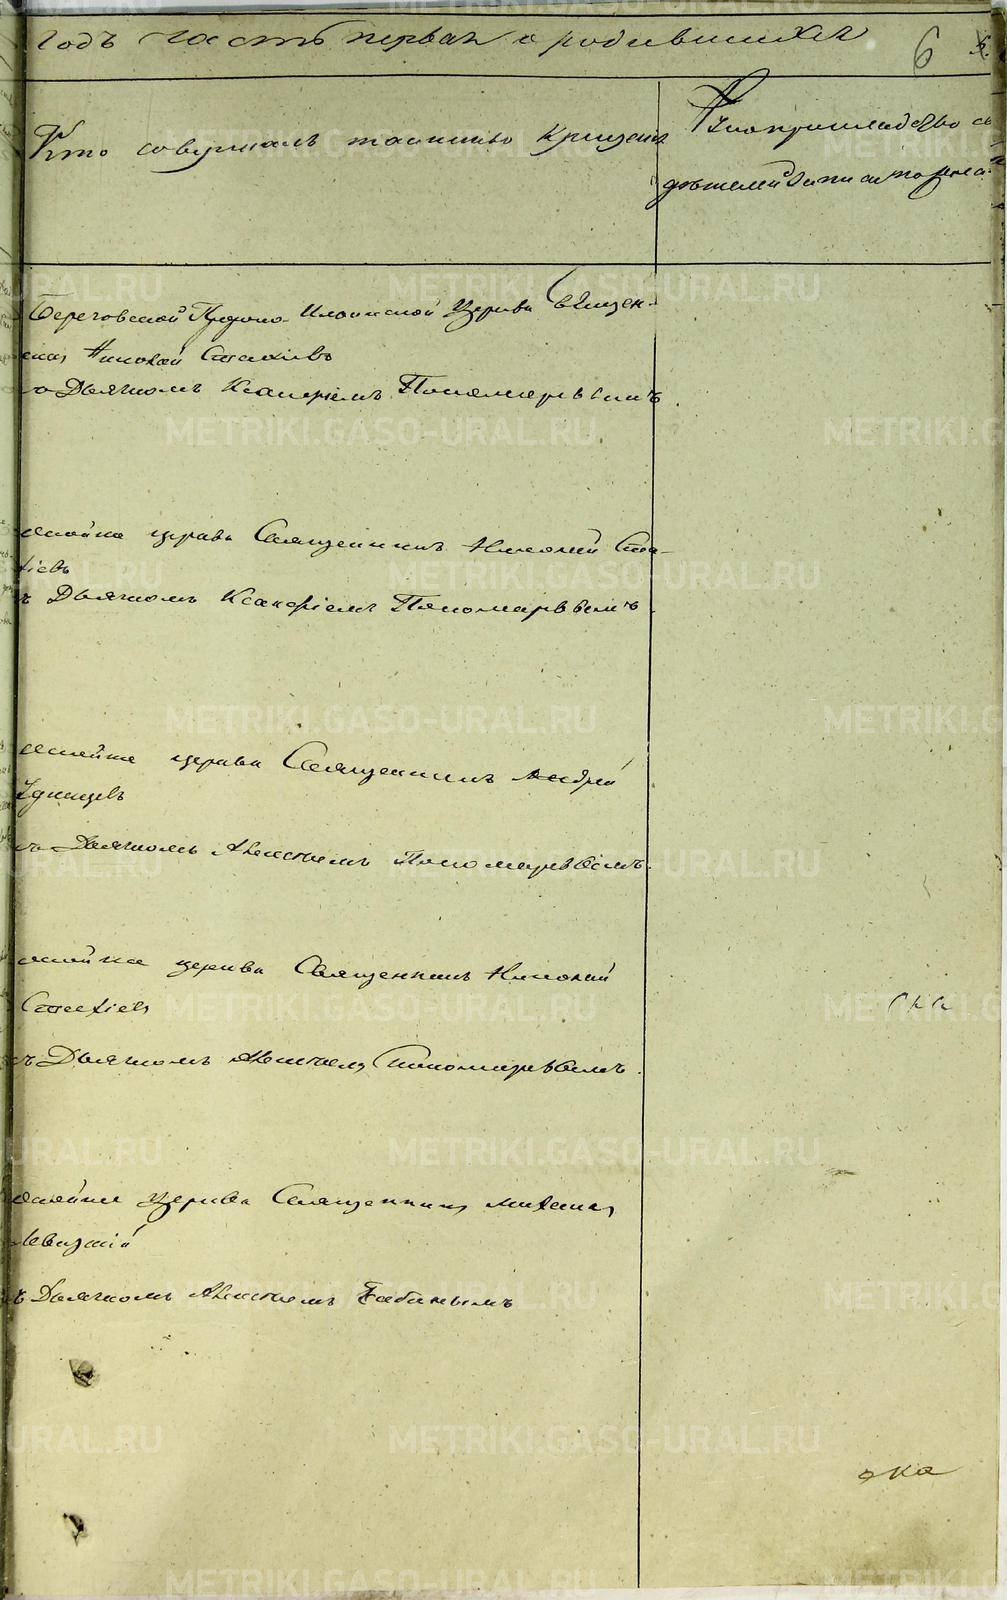 годъ часть первая о родившихся 6
Кто совершалъ таинство крещенія
Рукоприкладство сви
дѣтелей записи по жела
Береговской Пророко-Ильинской церкви священ-
никъ Николай Стахіевъ
съ Дьячкомъ Ксанфіемъ Пономаревымъ.
церкви Священникъ Николай Ста-
хіевъ
съ Дьячкомъ Ксанфіемъ Пономаревымъ.
церкви Священникъ Андрей
Удинцевъ
съ Дьячкомъ Алексѣемъ Пономаревымъ.
церкви Священникъ Николай
Стахіевъ
съ Дьячкомъ Алексѣемъ Пономаревымъ.
церкви Священникъ Михаилъ
Левицкій
съ Дьячкомъ Алексѣемъ Бабинымъ
ока
METRIKI.GASO-URAL.RU